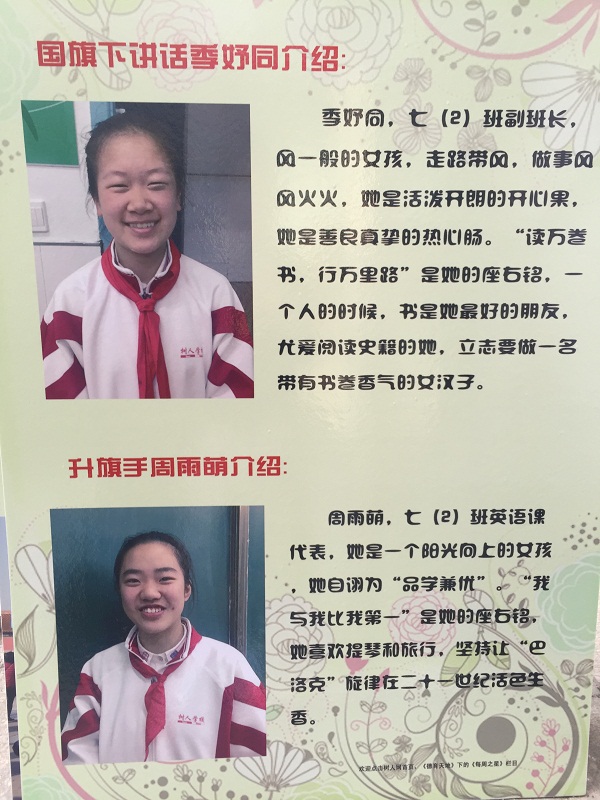 国旗下讲话季妤同介绍:
季妤同，七（2）班副班长，
风一般的女孩，走路带风，做事风
风火火，她是活泼开朗的开心果，
她是善良真挚的热心肠。“读万卷
书，行万里路”是她的座右铭，一
个人的时候，书是她最好的朋友，
尤爱阅读史籍的她，立志要做一名
带有书卷香气的女汉子。
升旗手周雨萌介绍:
周雨萌，七（2）班英语课
代表，她是一个阳光向上的女孩
，她自诩为“品学兼优”。“我
与我比我第一”是她的座右铭，
她喜欢提琴和旅行，坚持让“巴
洛克”旋律在二十一世纪活色生
香。
欢迎点击树人网首页，《德育天地》下的《每周之星》栏目